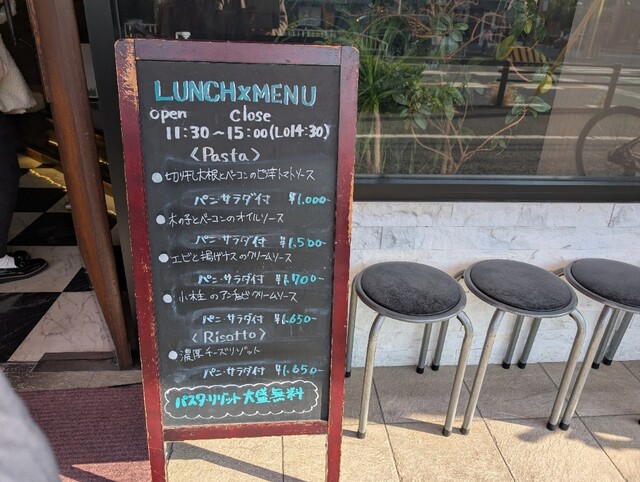 LUNCH×MENU
Open Close
11:30～15:00(L.O14:30)
〈Pasta〉
●切り干し大根とベーコンのピリ辛トマトソース
パン・サラダ付 ¥1,000-
●木の子とベーコンのオイルソース
パン・サラダ付 ¥1,500-
●エビと揚げナスのクリームソース
パン・サラダ付 ¥1,700-
●小柱のアンチョビクリームソース
パン・サラダ付 ¥1,650-
〈Risotto〉
●濃厚チーズリゾット
パン・サラダ付 ¥1,650-
パスタ・リゾット大盛無料